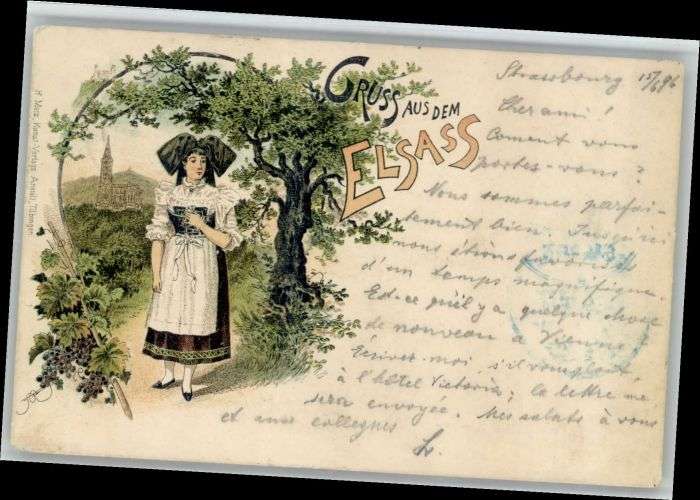 GRUSS AUS DEM
ELSASS
Strassbourg 15/6 96
Cher ami!
Coment vous
portes-vous?
Nous sommes parfai-
tement bien. Jusqu'ici
nous étions favorisés
d'un temps magnifique.
Est-ce qu'il y a quelque chose
de nouveau à Vienne?
Écrivez-moi, s'il vous plait,
à l'hôtel Victoria; la lettre me
sera envoyée. Mes saluts à vous
et aux collegues